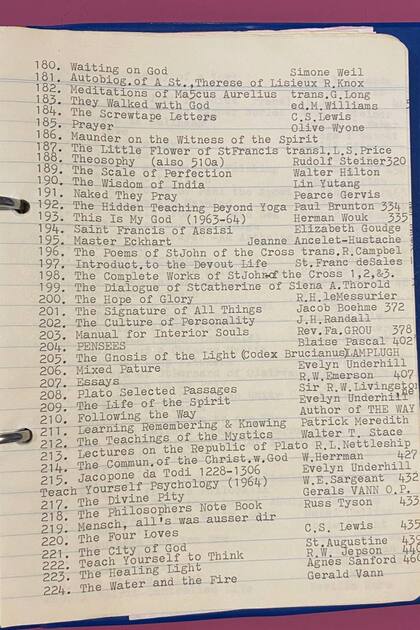 180. Waiting on God Simone Weil
181. Autobiog.of A St.,Therese of Lisieux R.Knox
182. Meditations of Ma5cus Aurelius trans.G.Long
183. They Walked with God ed.M.Williams
184. The Screwtape Letters C.S.Lewis
185. Prayer Olive Wyone
186. Maunder on the Witness of the Spirit
187. The Little Flower of StFrancis transl.L.S.Price
188. Theosophy (also 510a) Rudolf Steiner320
189. The Scale of Perfection Walter Hilton
190. The Wisdom of India Lin Yutang
191. Naked They Pray Pearce Gervis
192. The Hidden Teaching Beyond Yoga Paul Brunton 334
193. This Is My God (1963-64) Herman Wouk 335
194. Saint Francis of Assisi Elizabeth Goudge
195. Master Eckhart Jeanne Ancelet-Hustache
196. The Poems of StJohn of the Cross trans.R.Campbel
197. Introduct.to the Devout Life St.Franc deSales
198. The Complete Works of StJohn of the Cross 1,2,&3.
199. The Dialogue of StCatherine of Siena A.Thorold
200. The Hope of Glory R.H.leMessurier
201. The Signature of All Things Jacob Boehme 372
202. The Culture of Personality J.H.Randall
203. Manual for Interior Souls Rev.Fa.GROU 378
204. PENSEES Blaise Pascal 402
205. The Gnosis of the Light (Codex Brucianus)LAMPLUGH
206. Mixed Pature Evelyn Underhill
207. Essays R.W.Emerson 407
208. Plato Selected Passages Sir R.W.Livingsto
209. The Life of the Spirit Evelyn Underhill
210. Following the Way Author of THE WAY
211. Learning Remembering & Knowing Patrick Meredith
212. The Teachings of the Mystics Walter T. Stace
213. Lectures on the Republic of Plato R.L.Nettleship
214. The Commun.of the Christ.w.God W.Herrman 427
215. Jacopone da Todi 1228-1306 Evelyn Underhill
Teach Yourself Psychology (1964) W.E.Sargeant 432
217. The Divine Pity Gerals VANN O.P.
218. The Philosophers Note Book Russ Tyson 433
219. Mensch, all's was ausser dir
220. The Four Loves C.S. Lewis 435
221. The City of God St.Augustine 439
222. Teach Yourself to Think R.W. Jepson 440
223. The Healing Light Agnes Sanford 460
224. The Water and the Fire Gerald Vann